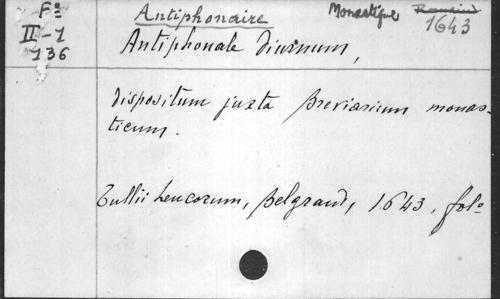 Fº
II-1
136
Antiphonaire Monastique Romain 1643
Antiphonale diurnum,
dispositum juxta Breviarium monas-
ticum.
Tullii Leucorum, Belgrand, 1643, folº